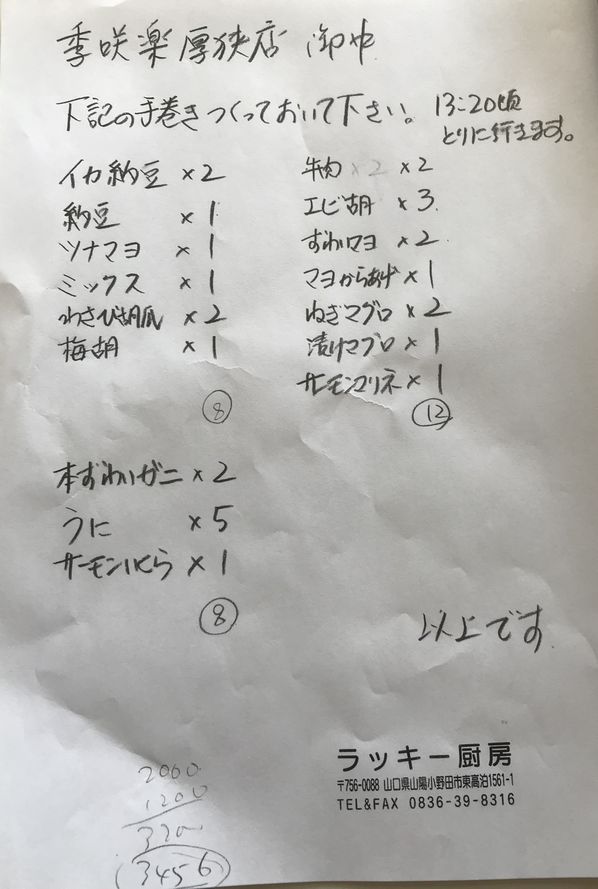 季咲楽厚狭店 御中
下記の手巻きつくっておいて下さい。 13:20頃
とりに行きます。
イカ納豆 ×2
納豆 ×1
ツナマヨ ×1
ミックス ×1
わさび胡瓜 ×2
梅胡 ×1
⑧
牛肉 ×2 ×2
エビ胡 ×3
ずわいマヨ ×2
マヨからあげ ×1
ねぎマグロ ×2
漬けマグロ ×1
サーモンマリネ ×1
⑫
本ずわいガニ ×2
うに ×5
サーモンいくら ×1
⑧
以上です
2000
1200
3200
3456
ラッキー厨房
〒756-0088 山口県山陽小野田市東高泊1561-1
TEL&FAX 0836-39-8316